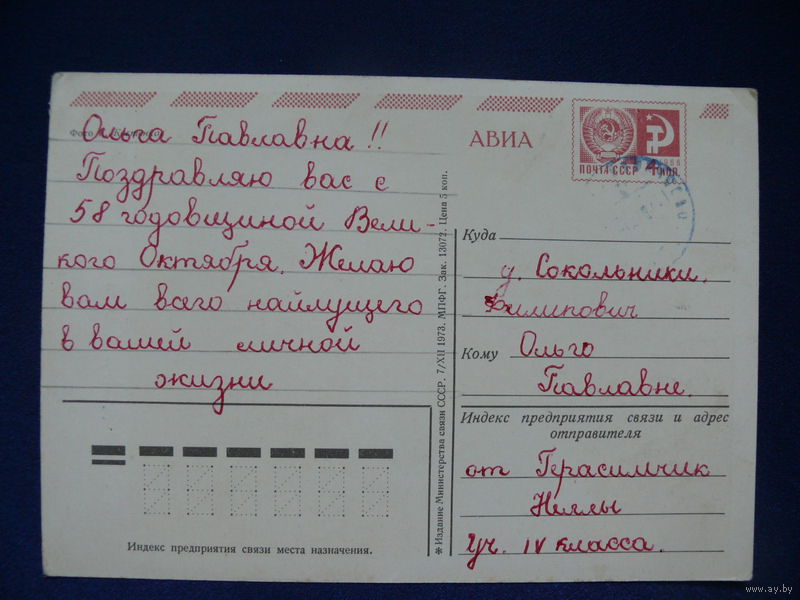 Ольга Павлавна!!
Поздравляю вас с
58 годовщиной Вели-
кого Октября. Желаю
вам всего найлущего
в вашей личной
жизни
АВИА
ПОЧТА СССР
Куда
д. Сокольники.
Филипович
Кому Ольго
Павлавне.
Индекс предприятия связи и адрес
отправителя
от Герасимчик
Неллы
Уч. IV класса.
✻ Издание Министерства связи СССР. 7/XII 1973. МПФГ. Зак. 13072. Цена 5 коп.
Индекс предприятия связи места назначения.
www.ay.by